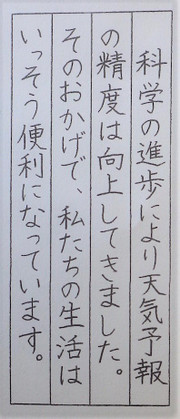 科学の進歩により天気予報
の精度は向上してきました。
そのおかげで、私たちの生活は
いっそう便利になっています。